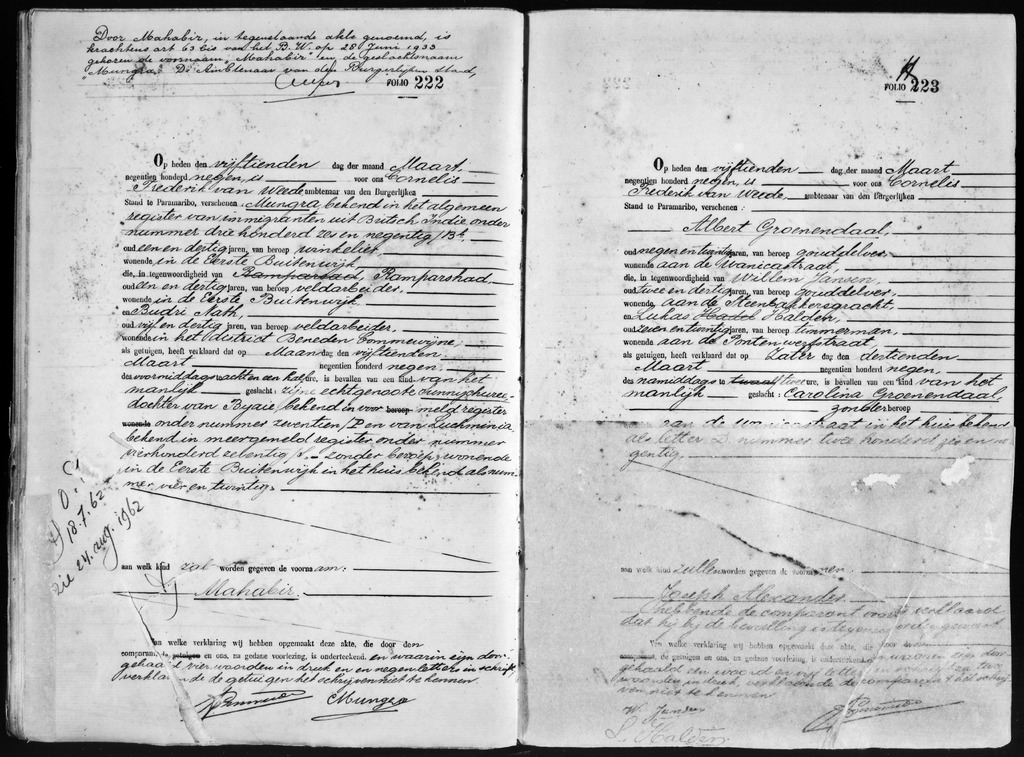 Door Mahabir, in tegenstaande akte genoemd, is
krachtens art 63 bis van het B.W. op 28 Juni 1933
gekozen de voornaam, "Mahabir" en de geslachtsnaam
"Mungra." De Ambtenaar van den Burgerlijken Stand,
FOLIO 222
Op heden den vijftienden dag der maand Maart,
negentien honderd negen, is voor ons Cornelis
Frederik van Weede, ambtenaar van den Burgerlijken
Stand te Paramaribo, verschenen: Mungra, bekend in het algemeen
register van immigranten uit Britsch Indië onder
nummer drie honderd zes en negentig / Bb,
oud een en dertig jaren, van beroep winkelier,
wonende in de Eerste Buitenwijk,
die, in tegenwoordigheid van Ramparsad, Ramparshad,
oud en dertig jaren, van beroep veldarbeider,
wonende in de Eerste Buitenwijk
en Budri Nath,
oud vijf en dertig jaren, van beroep veldarbeider,
wonende in het district Beneden Commewijne,
als getuigen, heeft verklaard dat op Maandag den vijftienden
Maart negentien honderd negen,
des voormiddags te acht en een half ure, is bevallen van een kind van het
manlijk geslacht: zijne echtgenoote
dochter van Byaie, bekend in voormeld register
wonende onder nummer zeventien /D en van Luchminia
bekend in meergemeld register onder nummer
vierhonderd zeventig zonder beroep, wonende
in de Eerste Buitenwijk in het huis bekend als num-
mer vier en twintig,
18.7.62
zie 24. aug. 1962
aan welk kind zal worden gegeven de voornaam:
Mahabir.
Van welke verklaring wij hebben opgemaakt deze akte, die door den
comparant, de getuigen en ons, na gedane voorlezing, is onderteekend en waarin zijn door-
gehaald vier woorden in druk en en negen letters in schrift,
verklarende de getuigen het schrijven niet te kennen.
Mungra
FOLIO 223
Op heden den vijftienden dag der maand Maart
negentien honderd negen, is voor ons Cornelis
Frederik van Weede, ambtenaar van den Burgerlijken
Stand te Paramaribo, verschenen:
Albert Groenendaal,
oud negen en twintig jaren, van beroep gouddelver,
wonende aan de Wanicastraat,
die, in tegenwoordigheid van Willem Jansen,
oud twee en dertig jaren, van beroep gouddelver,
wonende aan de Steenbakkersgracht,
en Lukas Hadel Halden,
oud zeven en twintig jaren, van beroep timmerman,
wonende aan de Pontenwerfstraat
als getuigen, heeft verklaard dat op Zaterdag den dertienden
Maart negentien honderd negen,
des namiddags te twaalf twee ure, is bevallen van een kind van het
manlijk geslacht: Carolina Groenendaal,
zonder beroep
aan de Wanicastraat in het huis bekend
als letter D. nummer twee honderd zes en ne-
gentig,
aan welk kind zullen worden gegeven de voornamen:
Joseph Alexander.
hebbende de comparant voorts verklaard
dat hij bij de bevalling is tegenwoordig geweest
Van welke verklaring wij hebben opgemaakt deze akte, die door
comparant, de getuigen en ons, na gedane voorlezing, is onderteekend en waarin zijn door-
gehaald een woord en letters
woorden in druk, verklarende de comparant het schrij-
ven niet te kennen.
W. Jansen
L. Halden